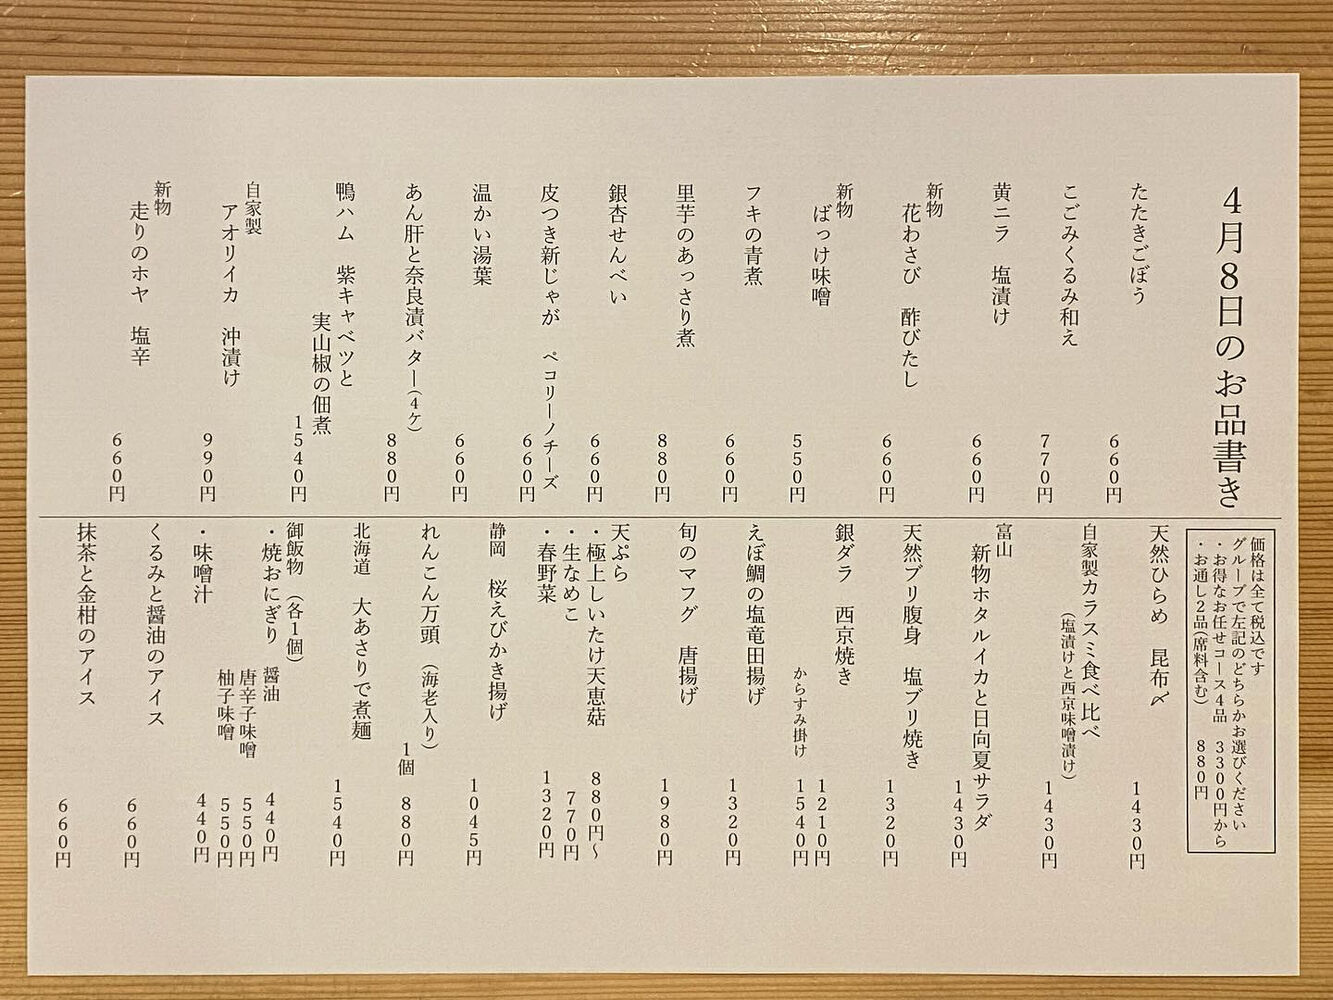 4月8日のお品書き
たたきごぼう
660円
こごみくるみ和え
770円
黄ニラ 塩漬け
660円
新物
花わさび 酢びたし
660円
新物
ばっけ味噌
550円
フキの青煮
660円
里芋のあっさり煮
880円
銀杏せんべい
660円
皮つき新じゃが ペコリーノチーズ
660円
温かい湯葉
660円
あん肝と奈良漬バター(4ケ)
880円
鴨ハム 紫キャベツと
実山椒の佃煮
1540円
自家製
アオリイカ 沖漬け
990円
新物
走りのホヤ 塩辛
660円
価格は全て税込です
グループで左記のどちらかお選びください
・お得なお任せコース4品 3300円から
・お通し2品(席料含む) 880円
天然ひらめ 昆布〆
1430円
自家製カラスミ食べ比べ
(塩漬けと西京味噌漬け)
1430円
富山
新物ホタルイカと日向夏サラダ
1430円
天然ブリ腹身 塩ブリ焼き
1320円
銀ダラ 西京焼き
1210円
からすみ掛け 1540円
えぼ鯛の塩竜田揚げ
1320円
旬のマフグ 唐揚げ
1980円
天ぷら
・極上しいたけ天恵菇 880円～
・生なめこ 770円
・春野菜 1320円
静岡 桜えびかき揚げ
1045円
れんこん万頭 (海老入り)
1個 880円
北海道 大あさりで煮麺
1540円
御飯物 (各1個)
・焼おにぎり 醤油 440円
唐辛子味噌 550円
柚子味噌 550円
・味噌汁 440円
くるみと醤油のアイス
660円
抹茶と金柑のアイス
660円